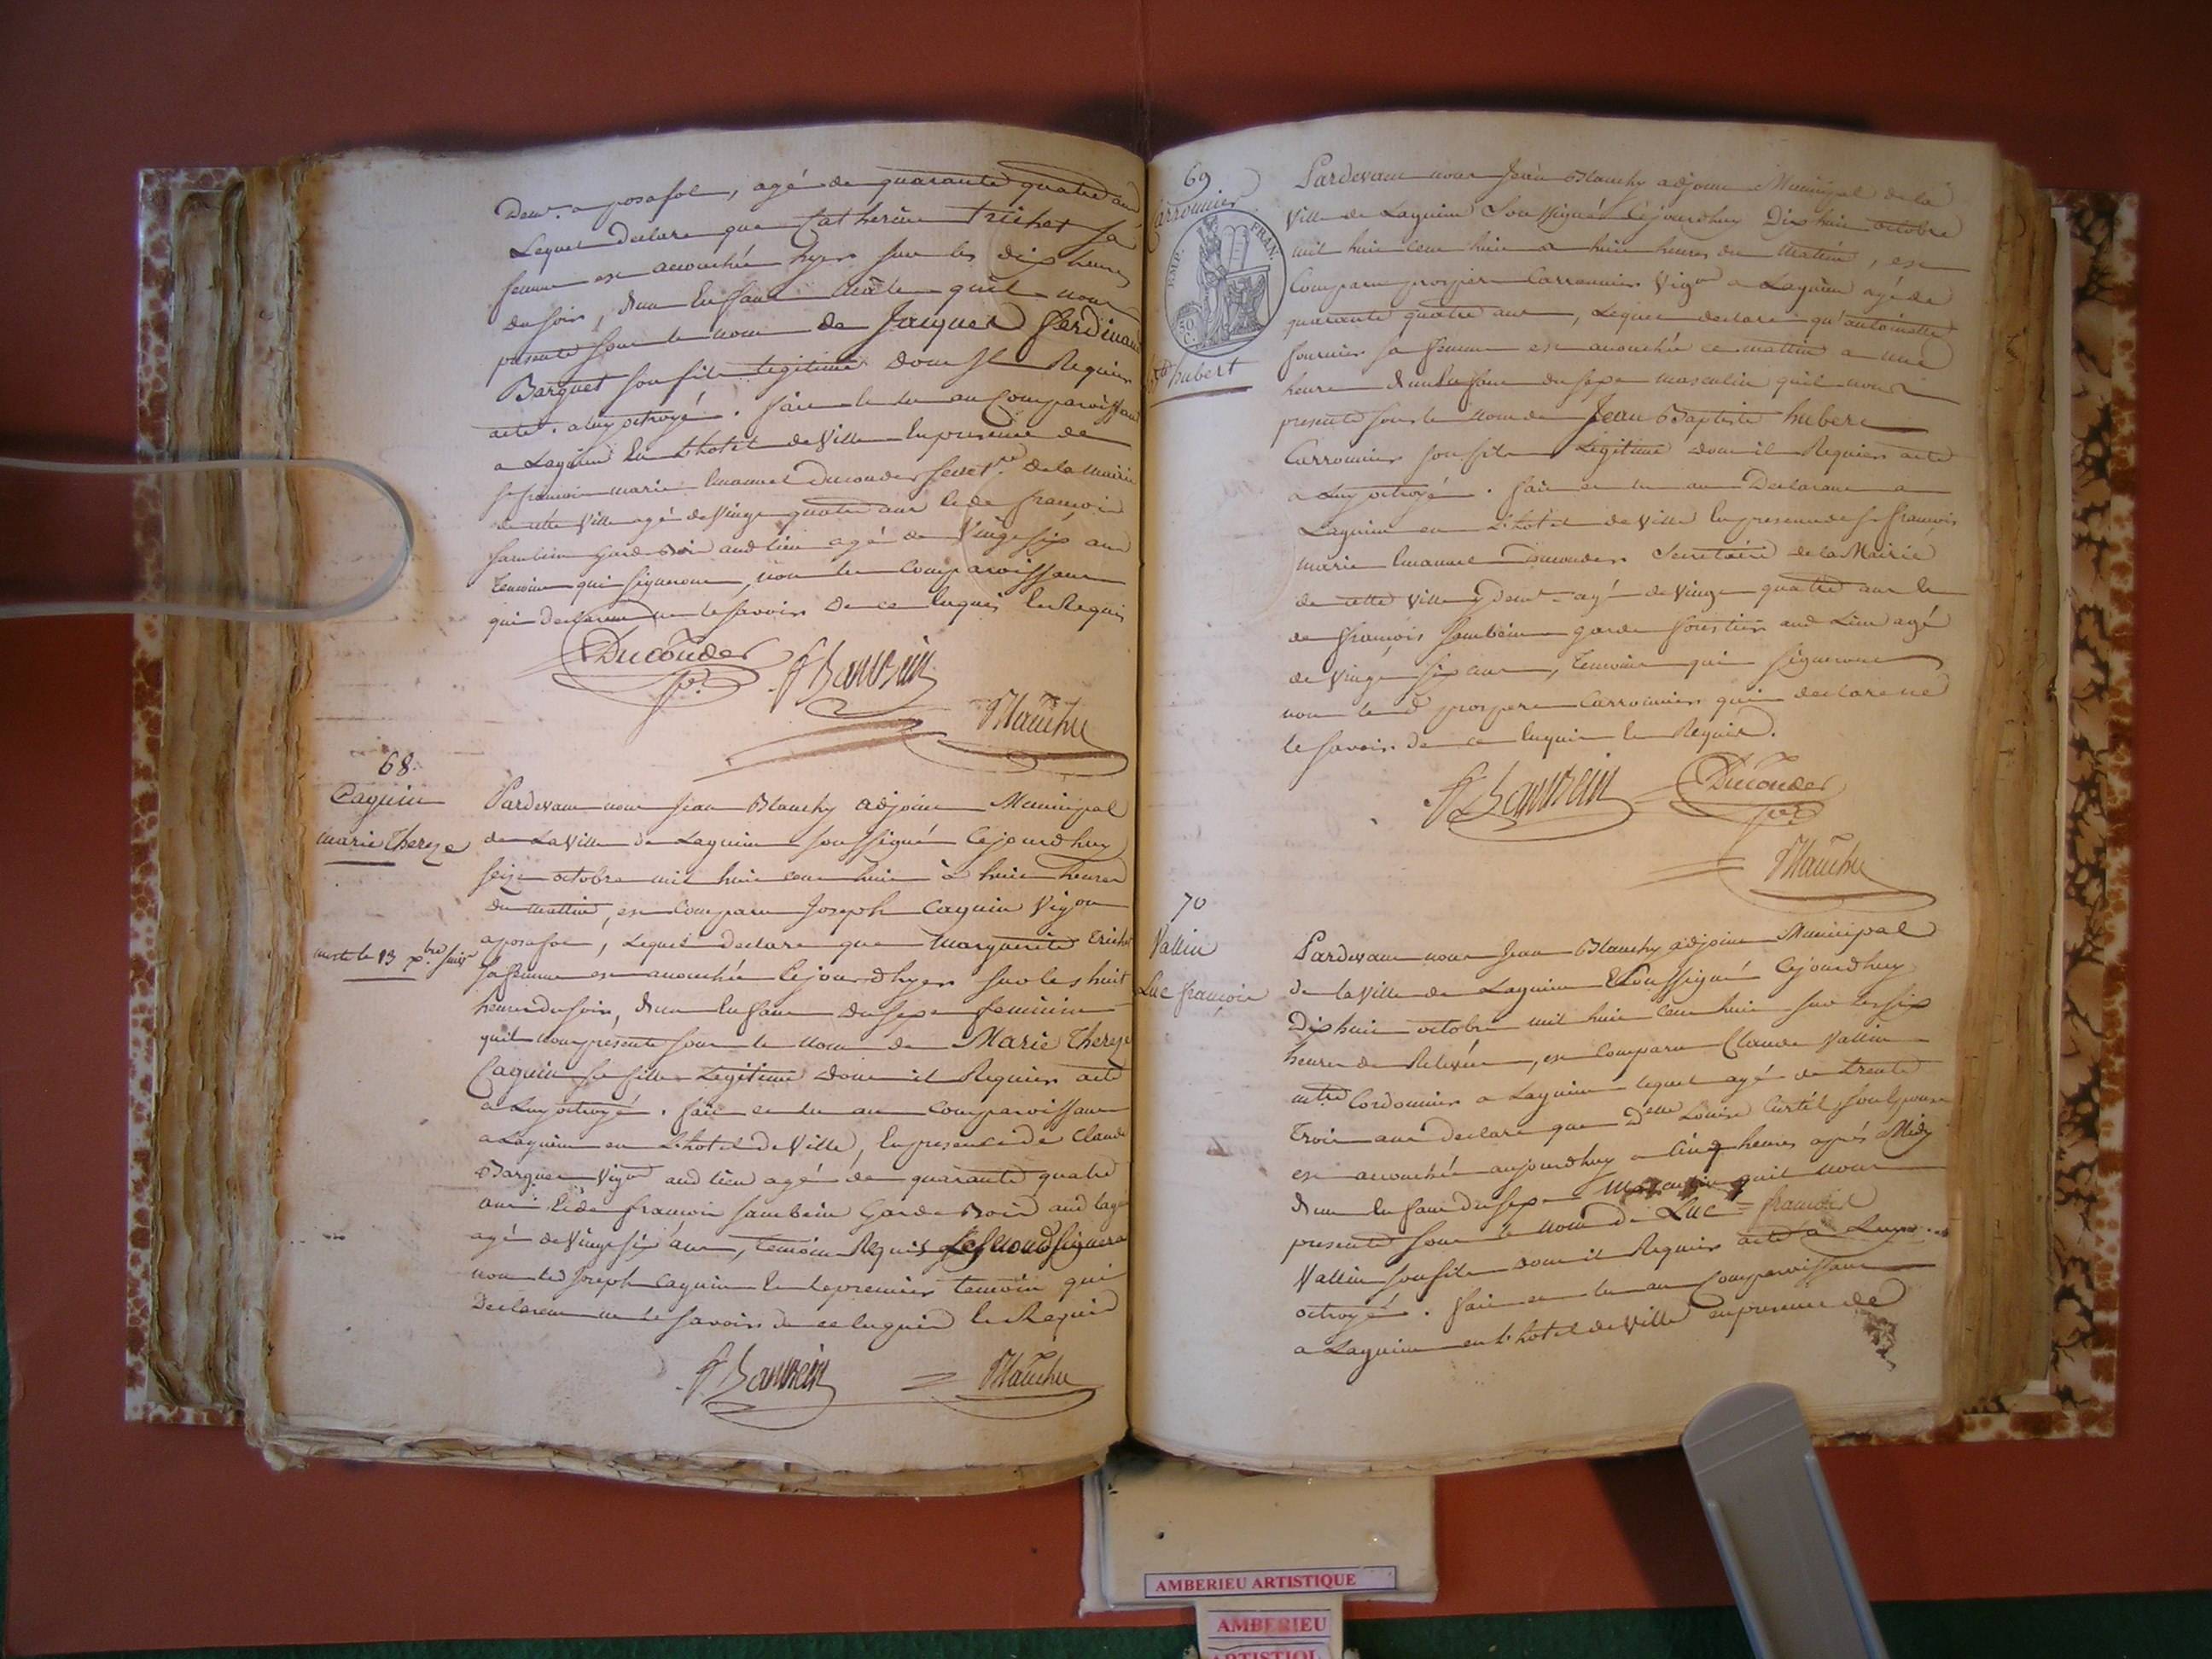 Demt. a posafol, agé de quarante quatre ans
Lequel declare que Catherine Trichet sa
femme est accouchée hyer sur les dix heures
du soir, d'un Enfant mâle qu'il nous
presente sous le nom de Jacques Ferdinand
Barquet son fils legitime dont Il Requier
acte. a luy octroyé. fait et lu au Comparoissant
a Lagnieu En L'hotel de Ville En presence de
Sr françois marie Emanuel Duconder secret.re de la mairie
de cette Ville agé de Vingt quatre ans et de françois
Garde Bois aud lieu agé de Vingt six ans
Temoins qui signeront, non le Comparoissant
qui declare ne le savoir de ce Enquis Et Requis
Duconder
Blanchy
68.
Caguin
marie Thereze
morte le 13 xbre suivt
Pardevant nous Jean Blanchy adjoint Municipal
de La Ville de Lagnieu soussigné Cejourd'huy
seize octobre mil huit cent huit à huit heures
du mattin, est Comparu Joseph Caguin Vigon
a posafol, Lequel declare que Marguerite Trichet
sa femme est accouchée Cejourd'hyer sur les huit
heures du soir, d'un Enfant du sexe feminin
qu'il nous presente sous le nom de Marie Thereze
Caguin sa fille Legitime dont il Requier acte
a Luy octroyé. fait et lu au Comparoissant
a Lagnieu en L'hotel de Ville, En presence de Claude
Barquet Vigon aud lieu agé de quarante quatre
ans et de françois Garde Bois aud Lag
agé de Vingt six ans, temoins Requis Le second signera
non led Joseph Caguin Et le premier temoin qui
Declarent ne le savoir de ce Enquis Et Requis
Blanchy
69
Carronnier
hubert
EMP. FRAN.
50 C.
Pardevant nous Jean Blanchy adjoint Municipal de la
Ville de Lagnieu Soussigné Cejourd'huy Dix huit octobre
mil huit cent huit a huit heures du Mattin, est
Comparu prosper Carronnier Vigon a Lagnieu agé de
quarante quatre ans, Lequel declare qu'antoinette
fournier sa femme est accouchée ce mattin a une
heure d'un Enfant du sexe masculin qu'il nous
presente sous le nom de Jean Baptiste hubert
Carronnier son fils Legitime dont il Requier acte
a Luy octroyé. fait et lu au Declarant a
Lagnieu en L'hotel de Ville En presence de Sr françois
marie Emanuel Duconder Secretaire de la Mairie
de cette Ville y demt agé de Vingt quatre ans Et
de françois garde forestier aud Lieu agé
de Vingt six ans, Temoins qui signeront
non led prosper Carronnier qui declare ne
le savoir de ce Enquis Et Requis.
Duconder
Blanchy
70
Vallin
Luc françois
Pardevant nous Jean Blanchy adjoint Municipal
de la Ville de Lagnieu Soussigné Cejourd'huy
Dix huit octobre mil huit Cent huit sur les six
heures de Relevée, est Comparu Claude Vallin
mtre Cordonnier a Lagnieu lequel agé de trente
trois ans declare que Delle Louise Curtil son Epouse
est accouchée aujourdhuy a Cinq heures aprés Midy
d'un Enfant du sexe masculin qu'il nous
presente sous le nom de Luc = françois
Vallin son fils dont il Requier acte a Luy
octroyé. fait et lu au Comparoissant
a Lagnieu en L'hotel de Ville en presence de
AMBERIEU ARTISTIQUE
AMBERIEU